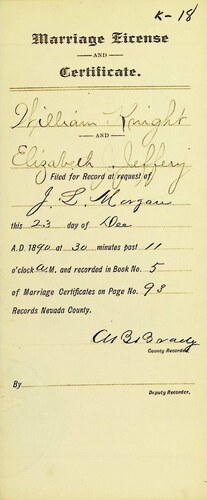 K-18
Marriage License
AND
Certificate.
William Knight
AND
Elizabeth Jeffery
Filed for Record at request of
J. L. Morgan
this 23 day of Dec
A.D. 1890 at 30 minutes past 11
o'clock A.M. and recorded in Book No. 5
of Marriage Certificates on Page No. 93
Records Nevada County.
Brady
County Recorder
By
Deputy Recorder.